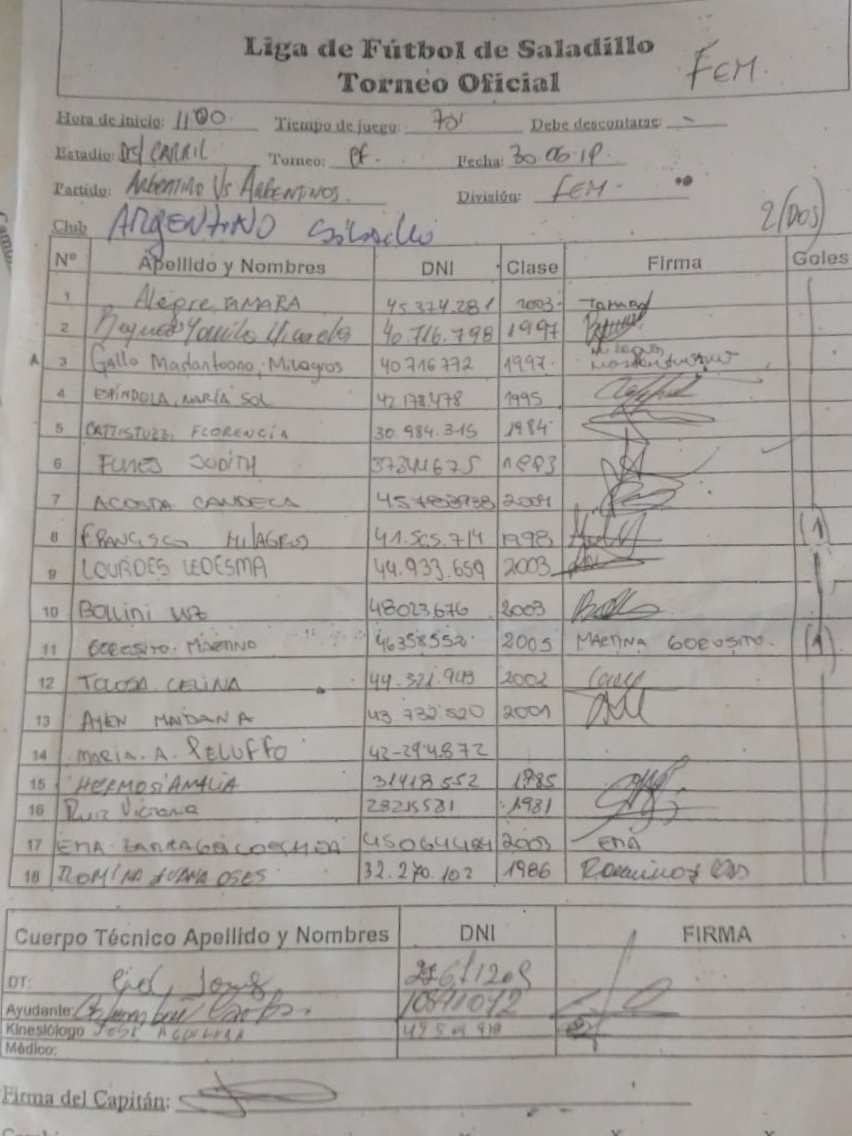 Liga de Fútbol de Saladillo
Torneo Oficial
FEM.
Hora de inicio: 1100 Tiempo de juego: 70' Debe descontarse: -
Estadio: Del CARRIL Torneo: Of. Fecha: 30.06.19.
Partido: Argentino Vs ARGENTINOS. División: FEM-
Club ARGENTINO Saladillo 2 (DOS)
Nº Apellido y Nombres DNI Clase Firma Goles
1 Alegre TAMARA 45.374.281 2003. TAMARA
2 40.716.798 1997
A 3 Gallo Mastantuono, Milagros 40716772 1997. Milagros Mastantuono
4 ESPÍNDOLA, MARÍA SOL 42.178.478 1995
5 BATTISTUZZI, FLORENCIA 30.984.315 1984
6 FUNES JUDITH 37344675 1993
7 ACOSTA CANDELA 2001
8 FRANCISCO MILAGROS 41.565.714 1998 (1)
9 LOURDES LEDESMA 44.933.659 2003
10 Bollini LUZ 48023676 2003
11 GOROSITO. MARTINA 46358552. 2005 MARTINA GOROSITO. (1)
12 TOLOSA CELINA 44.321.949 2002
13 AYLEN MAIDANA 43.732.520 2001
14 MARIA. A. PELUFFO 42-294.872
15 HERMOSI AMALIA 31418552 1985
16 Ruiz Victoria 28215581 1981
17 EMA 45064484 2003 EMA
18 ROMINA JUANA OSES 32.270.102 1986 Romina Oses
Cuerpo Técnico Apellido y Nombres DNI FIRMA
DT:
Ayudante: 10891072
Kinesiólogo JOSE AGUILERA
Médico:
Firma del Capitán: